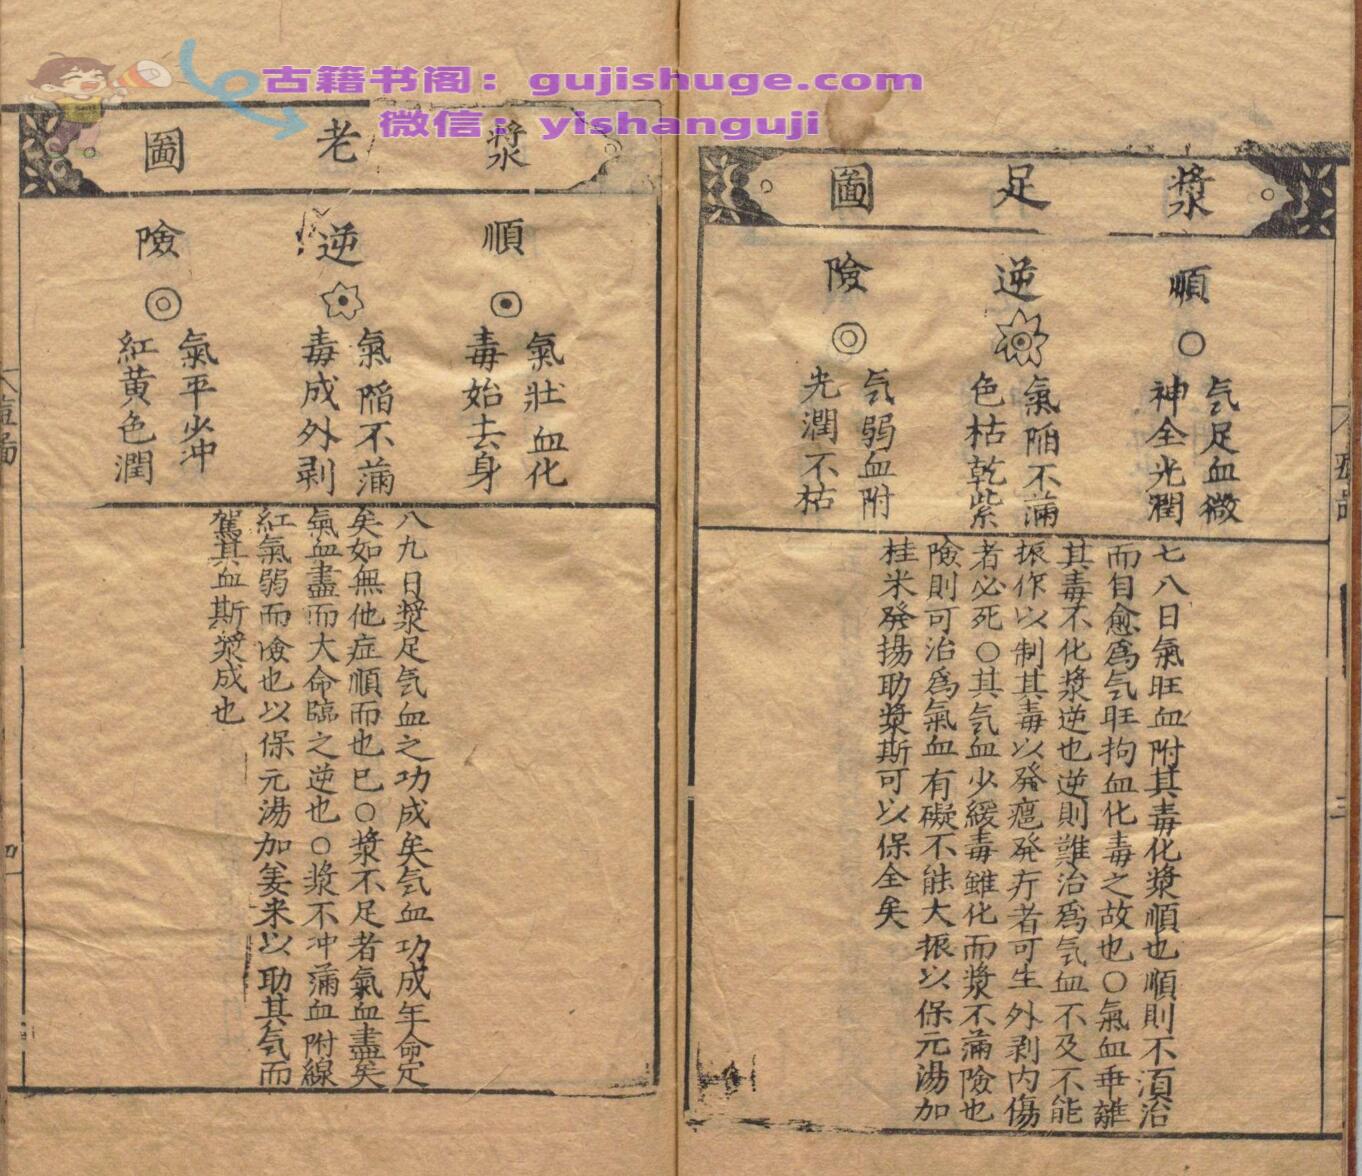 古籍书阁：gujishuge.com
微信：yishanguji
漿足圖
順
气足血微
神全光潤
逆
氣陷不滿
色枯乾紫
險
气弱血附
光潤不枯
七八日氣旺血附其毒化漿順也順則不湏治
而自愈爲气旺拘血化毒之故也○氣血乖離
其毒不化漿逆也逆則難治爲气血不及不能
振作以制其毒以發癍發疔者可生外剥内傷
者必死○其气血少緩毒雖化而漿不滿險也
險則可治爲氣血有礙不能大振以保元湯加
桂米發揚助漿斯可以保全矣
三
漿老圖
順
氣壯血化
毒始去身
逆
氣陷不滿
毒成外剥
險
氣平少冲
紅黄色潤
八九日漿足气血之功成矣气血功成年命定
矣如無他症順而也巳○漿不足者氣血盡矣
氣血盡而大命臨之逆也○漿不冲滿血附線
紅氣弱而險也以保元湯加姜米以助其气而
駕其血斯漿成也
四